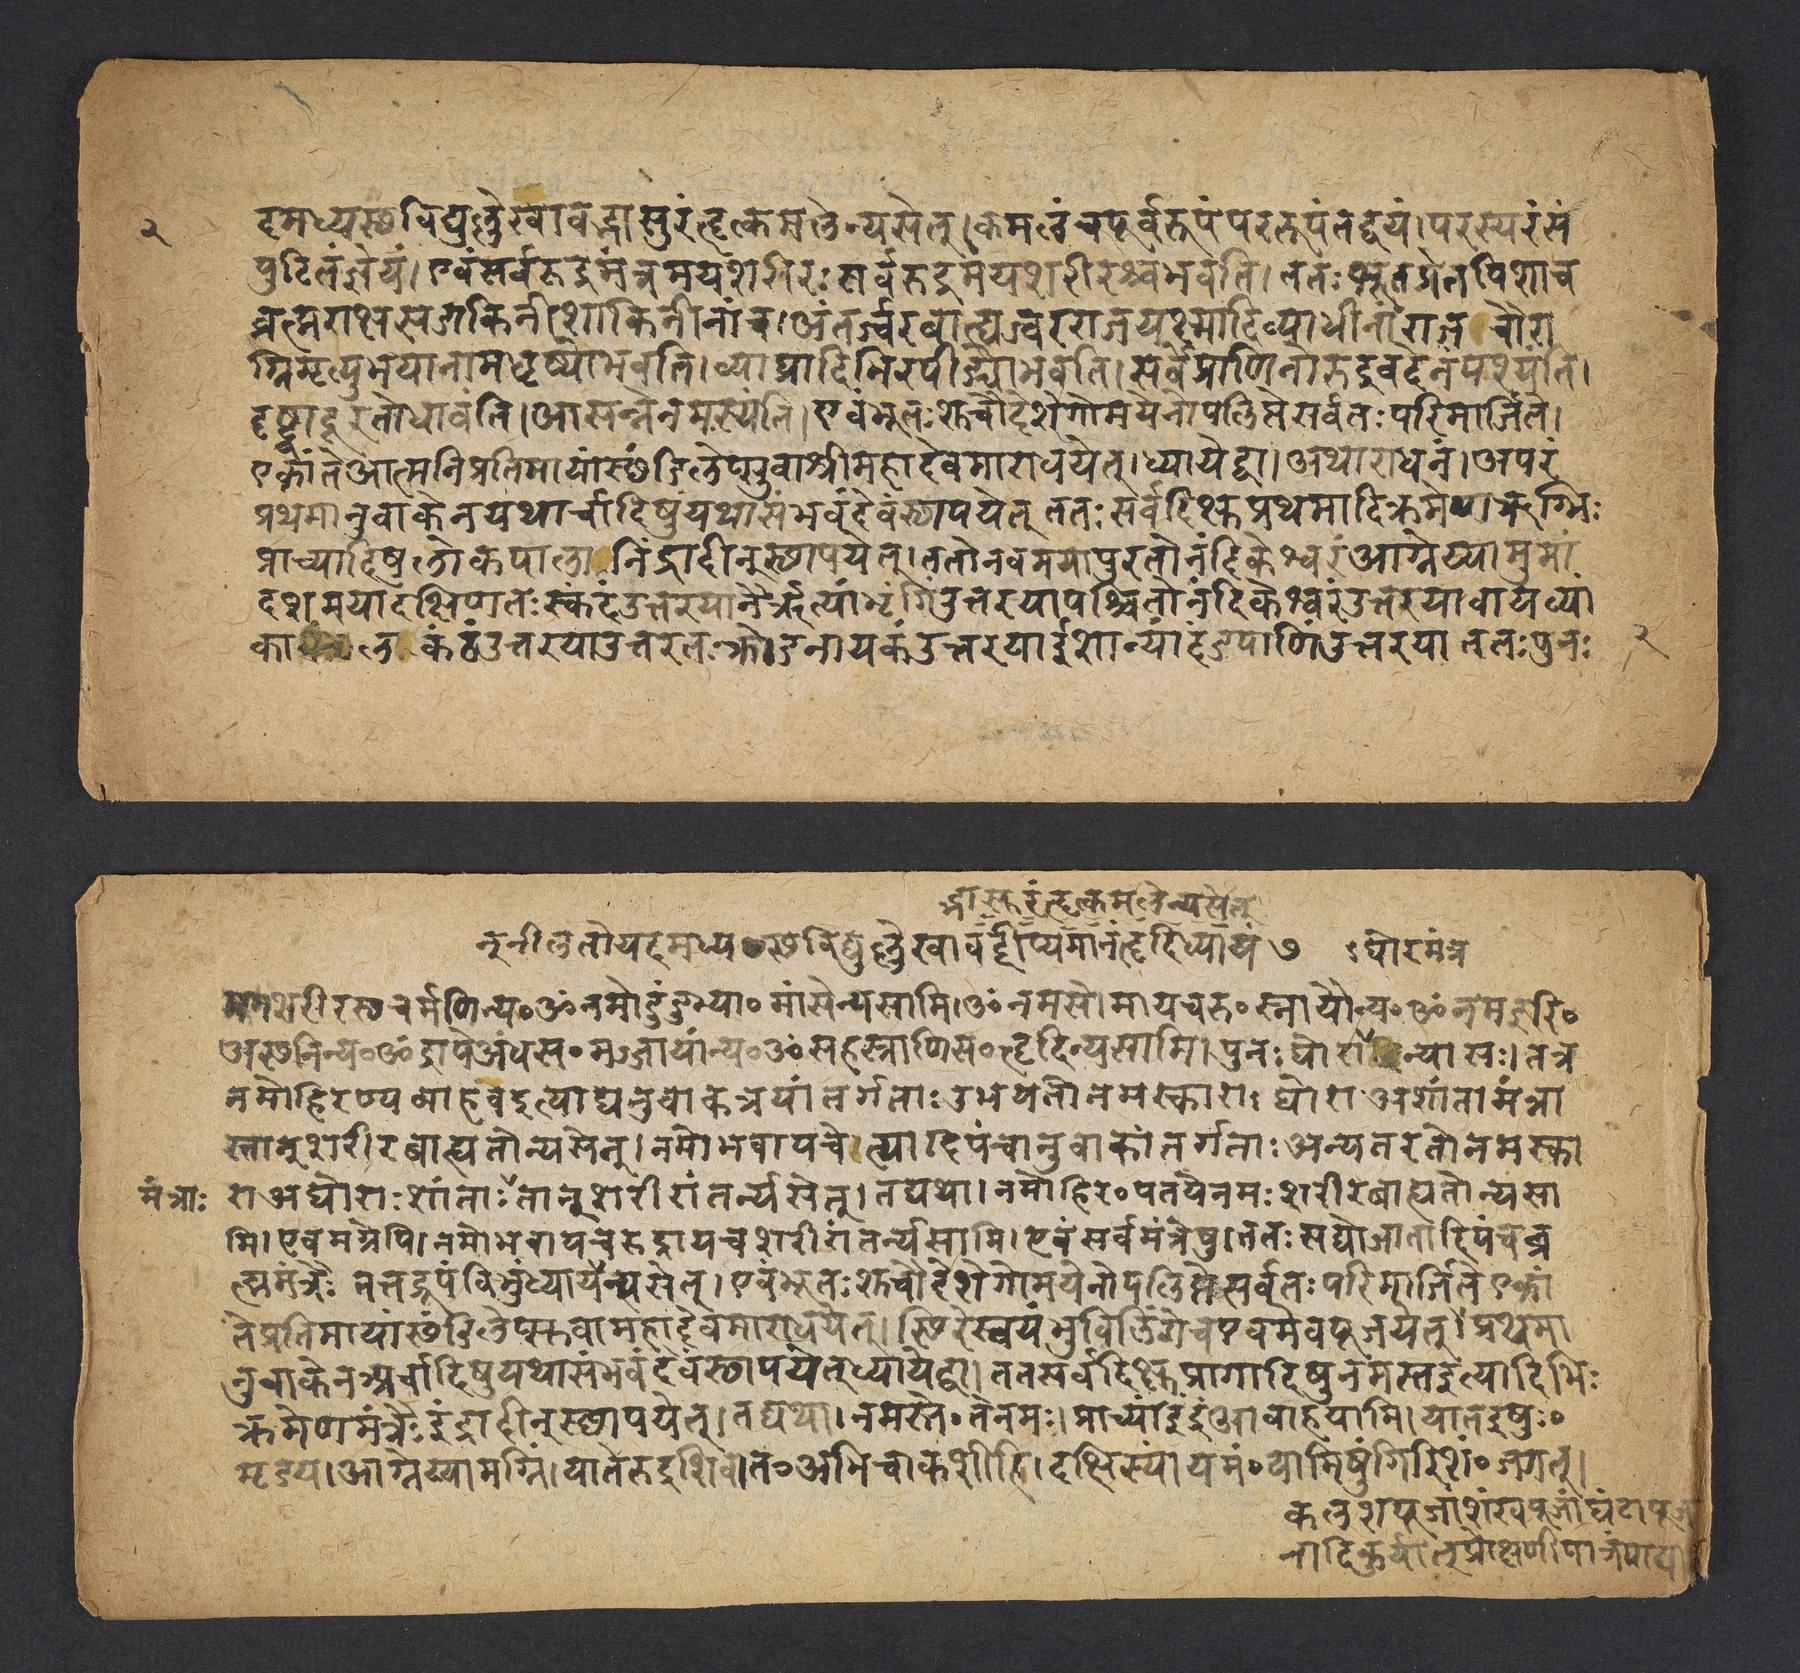 २
दमध्यस्थविद्युल्लेखावद्भासुरंहृत्कमलेन्यसेत्।कमलंचपूर्वरूपंपररूपंतद्द्वयं।परस्परंसं
पुटितंज्ञेयं।एवंसर्वरुद्रमंत्रमयशरीरःसर्वरुद्रमयशरीरश्चभवति।ततःभूतप्रेतपिशाच
ब्रह्मराक्षसडाकिनीशाकिनीनांच।अंतर्ज्वरबाह्यज्वरराजयक्ष्मादिव्याधीनांराज चौरा
ग्निमृत्युभयानामधृष्योभवति।व्याघ्रादिभिरपी भवति।सर्वेप्राणिनोरुद्रवदेनंपश्यंति।
दृष्ट्वादूरतोधावंति।आसन्नेनमस्यंति।एवंभूतःशुचौदेशेगोमयेनोपलिप्तेसर्वतःपरिमार्जिते।
एकांतेआत्मनिप्रतिमायांस्थंडिलेप्सुवाश्रीमहादेवमाराधयेत्।ध्यायेद्वा।अथाराधनं।अपरं
प्रथमानुवाकेनयथार्चादिषुयथासंभवंदेवंस्थापयेत् ततःसर्वदिक्षुप्रथमादिक्रमेण ऋग्भिः
प्राच्यादिषुलोकपाला निंद्रादीन्स्थापयेत्।ततोनवमयापुरतोनंदिकेश्वरंआग्नेय्यामुमां
दशमयादक्षिणतःस्कंदंउत्तरयानैर्ऋत्यांभृंगिंउत्तरयापश्चितोनंदिकेश्वरंउत्तरयावायव्यां
का ल कंठंउत्तरयाउत्तरेतःक्रोडनायकंउत्तरयाईशान्यांदंडपाणिंउत्तरया ततःपुनः
२
द्भास्करंहृत्कमलेन्यसेत्
नुनीलतोयदमध्यस्थविद्युल्लेखावद्दीप्यमानंहृदिध्यायं ७ ऽघोरमंत्र
ममशरीरस्थचर्मणिन्य॰ॐनमोदुंदुभ्या॰मांसेन्यसामि।ॐनमसोमायचरु॰स्नायौन्य॰ॐनमइरि॰
अस्थनिन्य॰ॐद्रापेअंधस॰मज्जायांन्य॰ॐसहस्राणिस॰हृदिन्यसामि।पुनःघोरा न्यासः।तत्र
नमोहिरण्यबाहवइत्याद्यनुवाकत्रयांतर्गताःउभयतोनमस्कारा घोराअशांतामंत्रा
स्तान्शरीरबाह्यतोन्यसेत्।नमोभवायचेत्यादिपंचानुवाकांतर्गताःअन्यतरतोनमस्का
मंत्राः राअघोराःशांताःतान्शरीरांतर्न्यसेत्।तद्यथा।नमोहिर॰पतयेनमःशरीरबाह्यतोन्यसा
मि।एवमग्रेपि।नमोभवायचरुद्रायचशरीरांतर्न्यसामि।एवंसर्वमंत्रेषु।ततःसद्योजातादिपंचब्र
ह्ममंत्रैः तत्तद्रूपंविभुंध्यायन्न्यसेत्।एवंभूतःशुचौदेशेगोमयेनोपलिप्तेसर्वतःपरिमार्जितेएकां
तेप्रतिमायांस्थंडिलेप्सुवामहादेवमाराधयेत्।स्थिरेस्वयंभुविलिंगेचएवमेवपूजयेत्।प्रथमा
नुवाकेनअर्चादिषुयथासंभवंदेवंस्थापयेत्ध्यायेद्वा।ततसर्वदिक्षुप्रागादिषुनमस्तइत्यादिभिः
क्रमेणमंत्रैःइंद्रादीन्स्थापयेत्।तद्यथा।नमस्ते॰तेनमः।प्राच्यांइंद्रंआवाहयामि।यातइषुः॰
मृडय।आग्नेय्यामग्निं।यातेरुद्रशिवात॰अभिचाकशीहि।दक्षिस्यांयमं॰यामिषुंगिरिशं॰जगत्।
कलशपूजांशंखपूजांघंटापूज
नादिकुर्यात्प्रोक्षणीपात्रंपाद्या